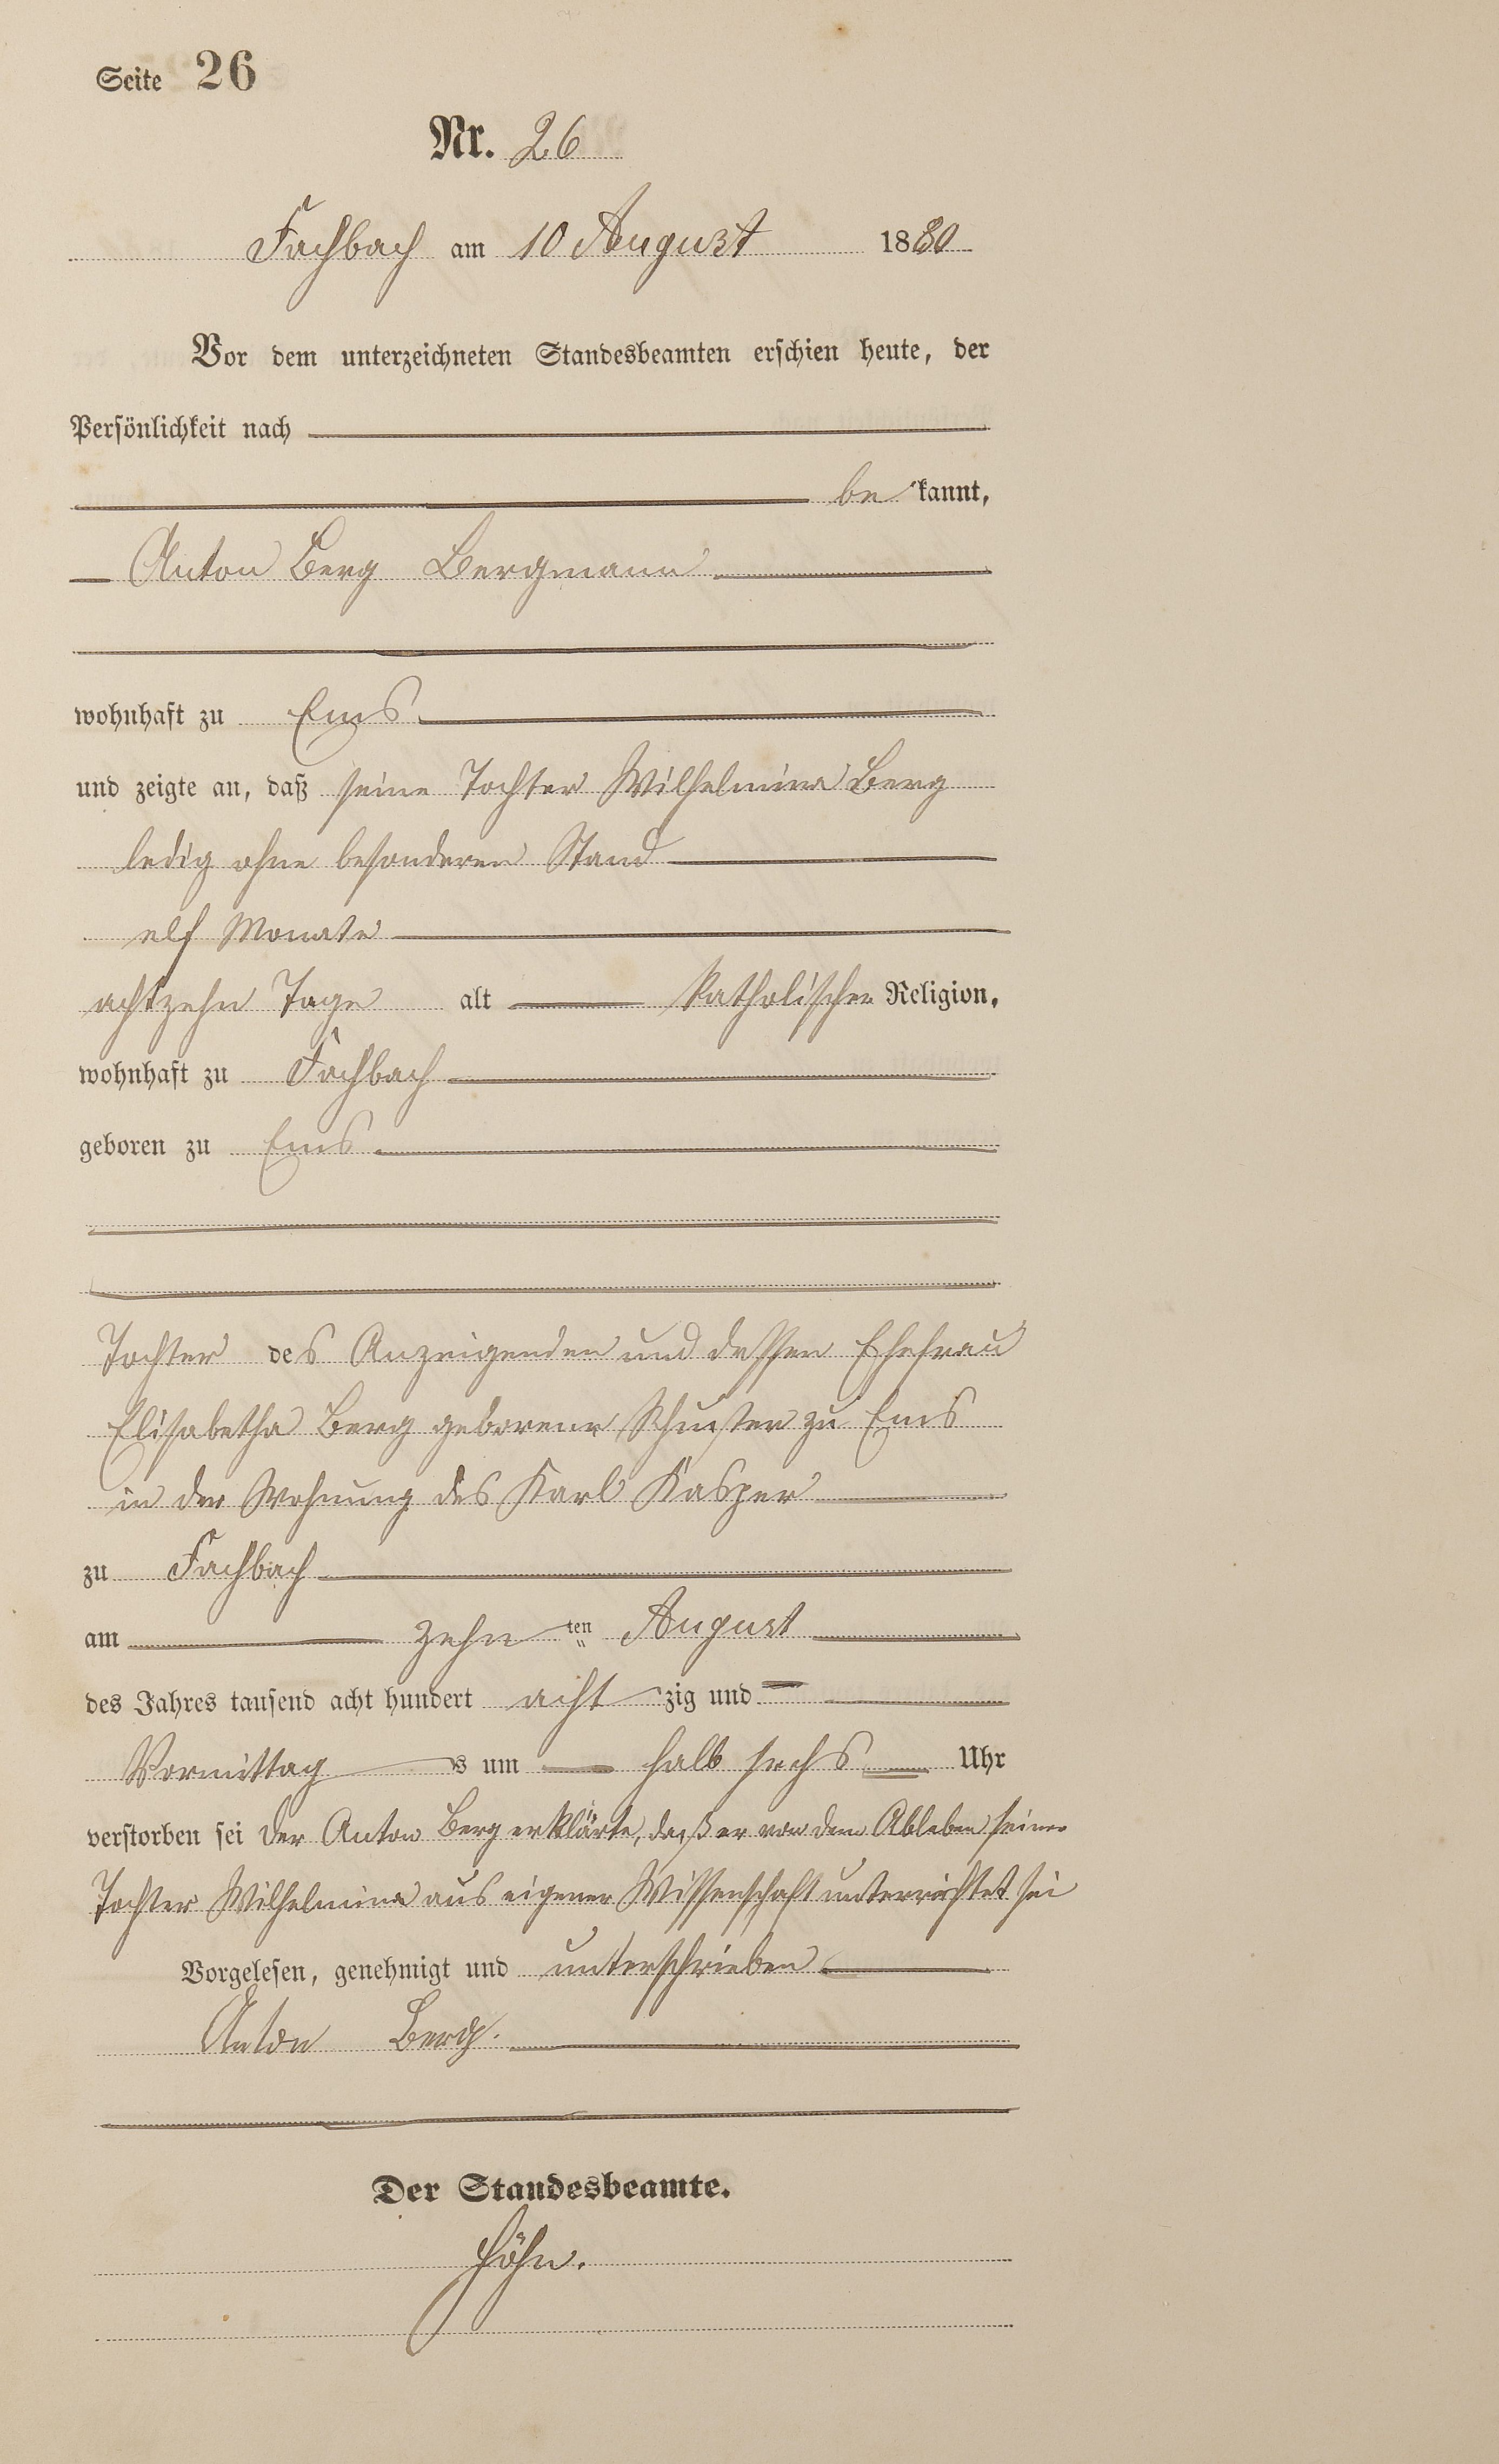 Seite 26
Nr. 26
Fachbach am 10 August 1880
Vor dem unterzeichneten Standesbeamten erschien heute, der
Persönlichkeit nach
be kannt,
Anton Berg Bergmann
wohnhaft zu Ems
und zeigte an, daß seine Tochter Wilhelmina Berg
ledig ohne besonderen Stand
elf Monate
achtzehn Tage alt katholischer Religion,
wohnhaft zu Fachbach
geboren zu Ems
Tochter des Anzeigenden und dessen Ehefrau
Elisabetha Berg geborene Schuster zu Ems
in der Wohnung des Karl Kasper
zu Fachbach
am zehn ten August
des Jahres tausend acht hundert acht zig und
Vormittag s um halb sechs Uhr
verstorben sei der Anton Berg erklärte, daß er von dem Ableben seiner
Tochter Wilhelmina aus eigener Wissenschaft unterrichtet sei
Vorgelesen, genehmigt und unterschrieben
Anton Berg.
Der Standesbeamte.
Höhn.